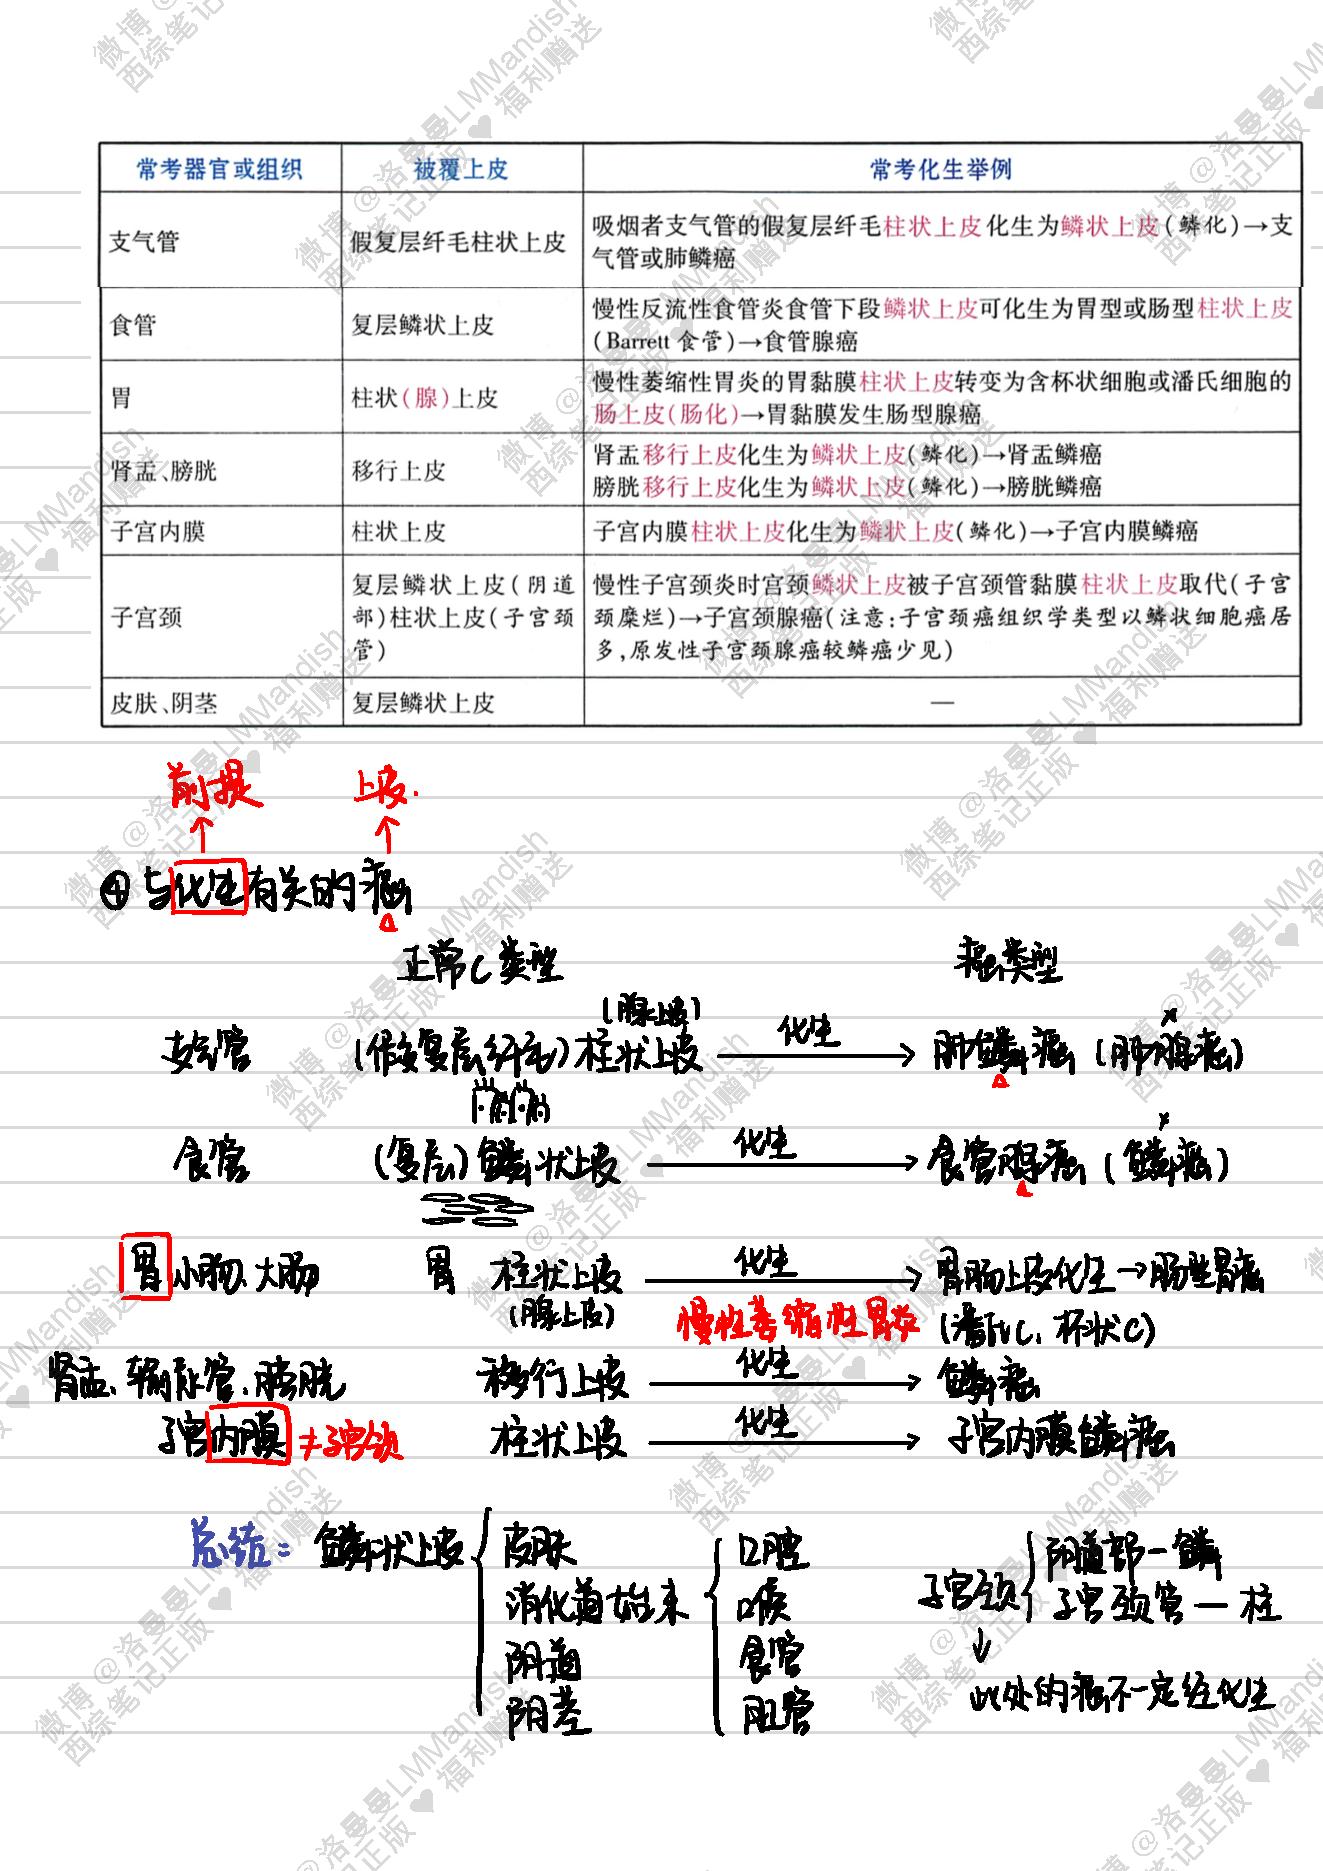 常考器官或组织 被覆上皮 常考化生举例
支气管 假复层纤毛柱状上皮 吸烟者支气管的假复层纤毛柱状上皮化生为鳞状上皮(鳞化)→支
气管或肺鳞癌
食管 复层鳞状上皮 慢性反流性食管炎食管下段鳞状上皮可化生为胃型或肠型柱状上皮
(Barrett 食管)→食管腺癌
胃 柱状(腺)上皮 慢性萎缩性胃炎的胃黏膜柱状上皮转变为含杯状细胞或潘氏细胞的
肠上皮(肠化)→胃黏膜发生肠型腺癌
肾盂、膀胱 移行上皮 肾盂移行上皮化生为鳞状上皮(鳞化)→肾盂鳞癌
膀胱移行上皮化生为鳞状上皮(鳞化)→膀胱鳞癌
子宫内膜 柱状上皮 子宫内膜柱状上皮化生为鳞状上皮(鳞化)→子宫内膜鳞癌
子宫颈 复层鳞状上皮(阴道 慢性子宫颈炎时宫颈鳞状上皮被子宫颈管黏膜柱状上皮取代(子宫
部)柱状上皮(子宫颈 颈糜烂)→子宫颈腺癌(注意:子宫颈癌组织学类型以鳞状细胞癌居
管) 多,原发性子宫颈腺癌较鳞癌少见)
皮肤、阴茎 复层鳞状上皮 —
前提 上皮.
↑ ↑
④ 与化生有关的癌
正常C类型 癌类型
(腺上皮)
支气管 (假复层纤毛)柱状上皮 化生→ 肺鳞癌 (肺腺癌) ×
食管 (复层)鳞状上皮 化生→ 食管腺癌 (鳞癌) ×
胃 小肠、大肠 胃 柱状上皮 化生→ 胃肠上皮化生→肠型胃癌
(腺上皮) 慢性萎缩性胃炎 (潘氏C、杯状C)
肾盂、输尿管、膀胱 移行上皮 化生→ 鳞癌
子宫内膜 ≠子宫颈 柱状上皮 化生→ 子宫内膜鳞癌
总结: 鳞状上皮 { 皮肤
消化道始末 { 口腔
喉
食管
肛管
阴道
阴茎
子宫颈 { 阴道部—鳞
子宫颈管—柱
↓
此处的癌不一定经化生
微博@洛曼曼LMMandish
西综笔记正版♥福利赠送